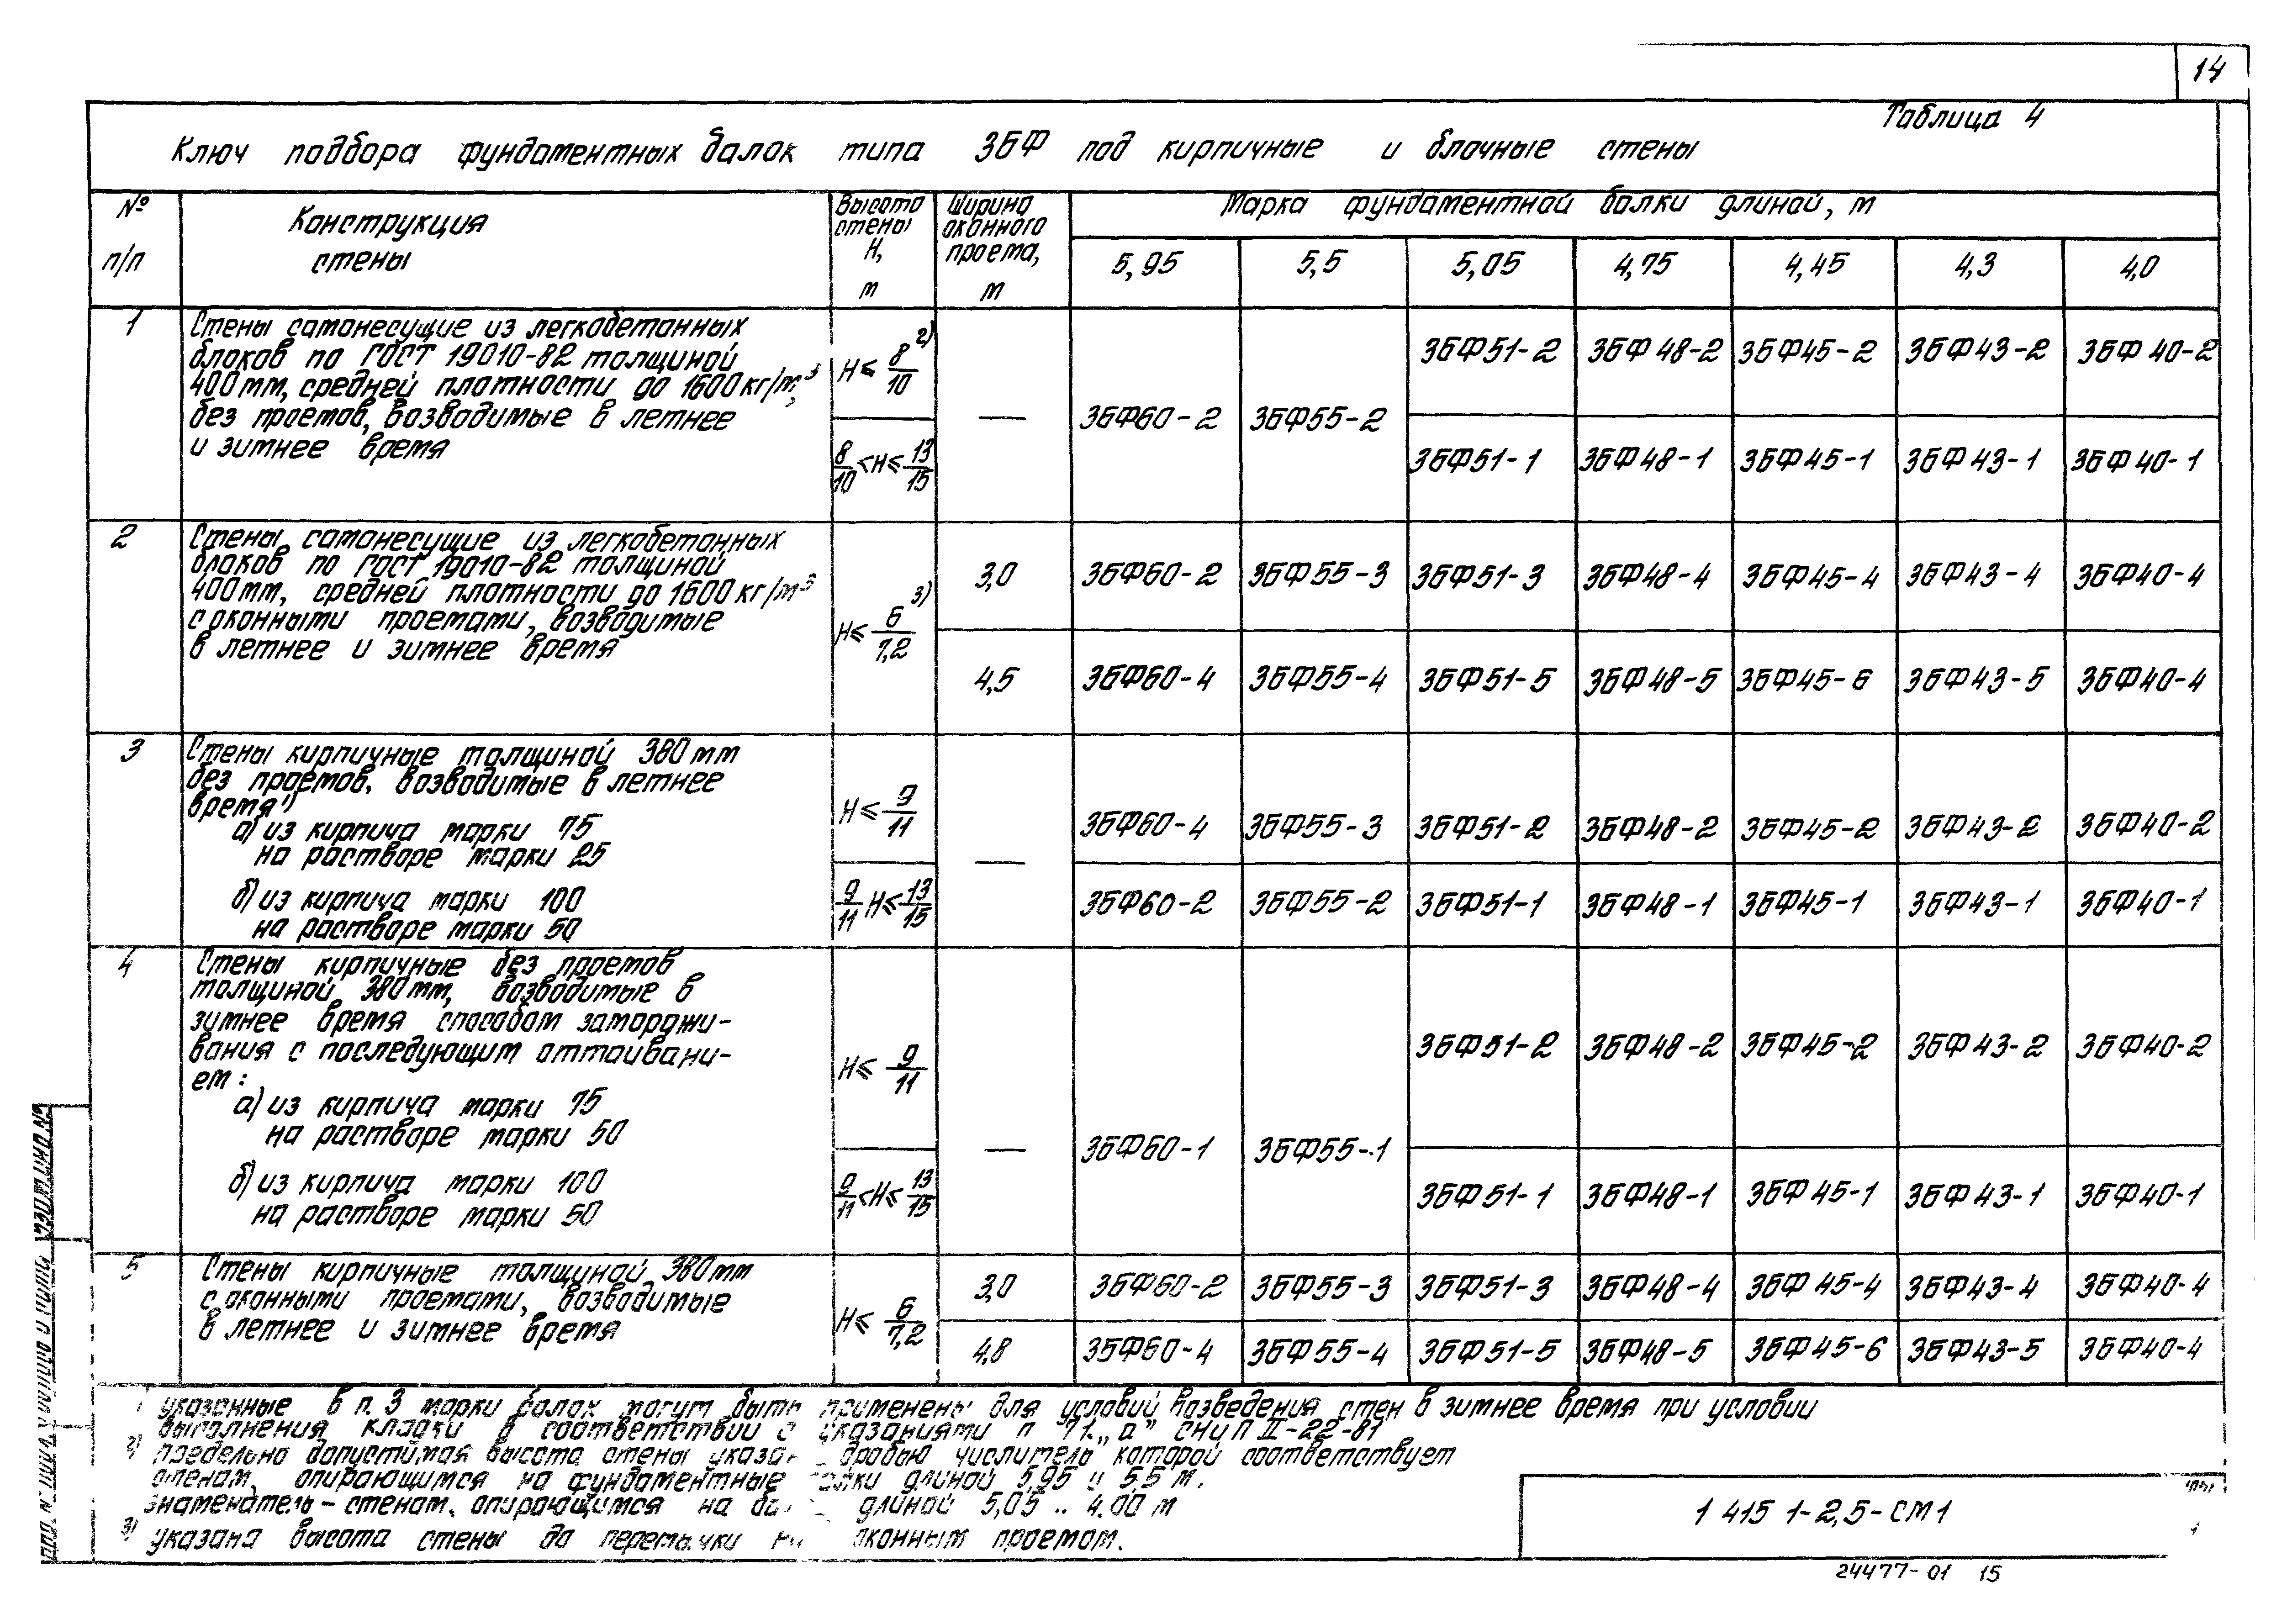 14
Таблица 4
Ключ подбора фундаментных балок типа 3БФ под кирпичные и блочные стены
№ п/п
Конструкция стены
Высота стены Н, м
Ширина оконного проема, м
Марка фундаментной балки длиной, м
5,95 5,5 5,05 4,75 4,45 4,3 4,0
1
Стены самонесущие из легкобетонных
блоков по ГОСТ 19010-82 толщиной
400мм, средней плотности до 1600кг/м³,
без проемов, возводимые в летнее
и зимнее время
Н≤ 8/10 2)
8/10 <Н≤ 13/15
—
3БФ60-2 3БФ55-2
3БФ51-2 3БФ48-2 3БФ45-2 3БФ43-2 3БФ40-2
3БФ51-1 3БФ48-1 3БФ45-1 3БФ43-1 3БФ40-1
2
Стены самонесущие из легкобетонных
блоков по ГОСТ 19010-82 толщиной
400мм, средней плотности до 1600кг/м³
с оконными проемами, возводимые
в летнее и зимнее время
Н≤ 6/7,2 3)
3,0 3БФ60-2 3БФ55-3 3БФ51-3 3БФ48-4 3БФ45-4 3БФ43-4 3БФ40-4
4,5 3БФ60-4 3БФ55-4 3БФ51-5 3БФ48-5 3БФ45-6 3БФ43-5 3БФ40-4
3
Стены кирпичные толщиной 380мм
без проемов, возводимые в летнее
время 1)
а) из кирпича марки 75
на растворе марки 25
б) из кирпича марки 100
на растворе марки 50
Н≤ 9/11
9/11 Н≤ 13/15
—
3БФ60-4 3БФ55-3 3БФ51-2 3БФ48-2 3БФ45-2 3БФ43-2 3БФ40-2
3БФ60-2 3БФ55-2 3БФ51-1 3БФ48-1 3БФ45-1 3БФ43-1 3БФ40-1
4
Стены кирпичные без проемов
толщиной 380мм, возводимые в
зимнее время способом заморажи-
вания с последующим оттаивани-
ем:
а) из кирпича марки 75
на растворе марки 50
б) из кирпича марки 100
на растворе марки 50
Н≤ 9/11
9/11 <Н≤ 13/15
—
3БФ60-1 3БФ55-1
3БФ51-2 3БФ48-2 3БФ45-2 3БФ43-2 3БФ40-2
3БФ51-1 3БФ48-1 3БФ45-1 3БФ43-1 3БФ40-1
5
Стены кирпичные толщиной 380мм
с оконными проемами, возводимые
в летнее и зимнее время
Н≤ 6/7,2
3,0 3БФ60-2 3БФ55-3 3БФ51-3 3БФ48-4 3БФ45-4 3БФ43-4 3БФ40-4
4,8 3БФ60-4 3БФ55-4 3БФ51-5 3БФ48-5 3БФ45-6 3БФ43-5 3БФ40-4
указанные в п. 3 марки балок могут быть применены для условий возведения стен в зимнее время при условии
выполнения кладки в соответствии с указаниями п 7 1. „а" СНиП II-22-81
2) предельно допустимая высота стены дробью числитель которой соответствует
стенам, опирающимся на фундаментные балки длиной 5,95 и 5,5 м.
знаменатель – стенам, опирающимся на длиной 5,05 .. 4.00 м
3) указана высота стены до перемычки оконным проемом.
1 415 1-2,5-СМ1
24477-01 15